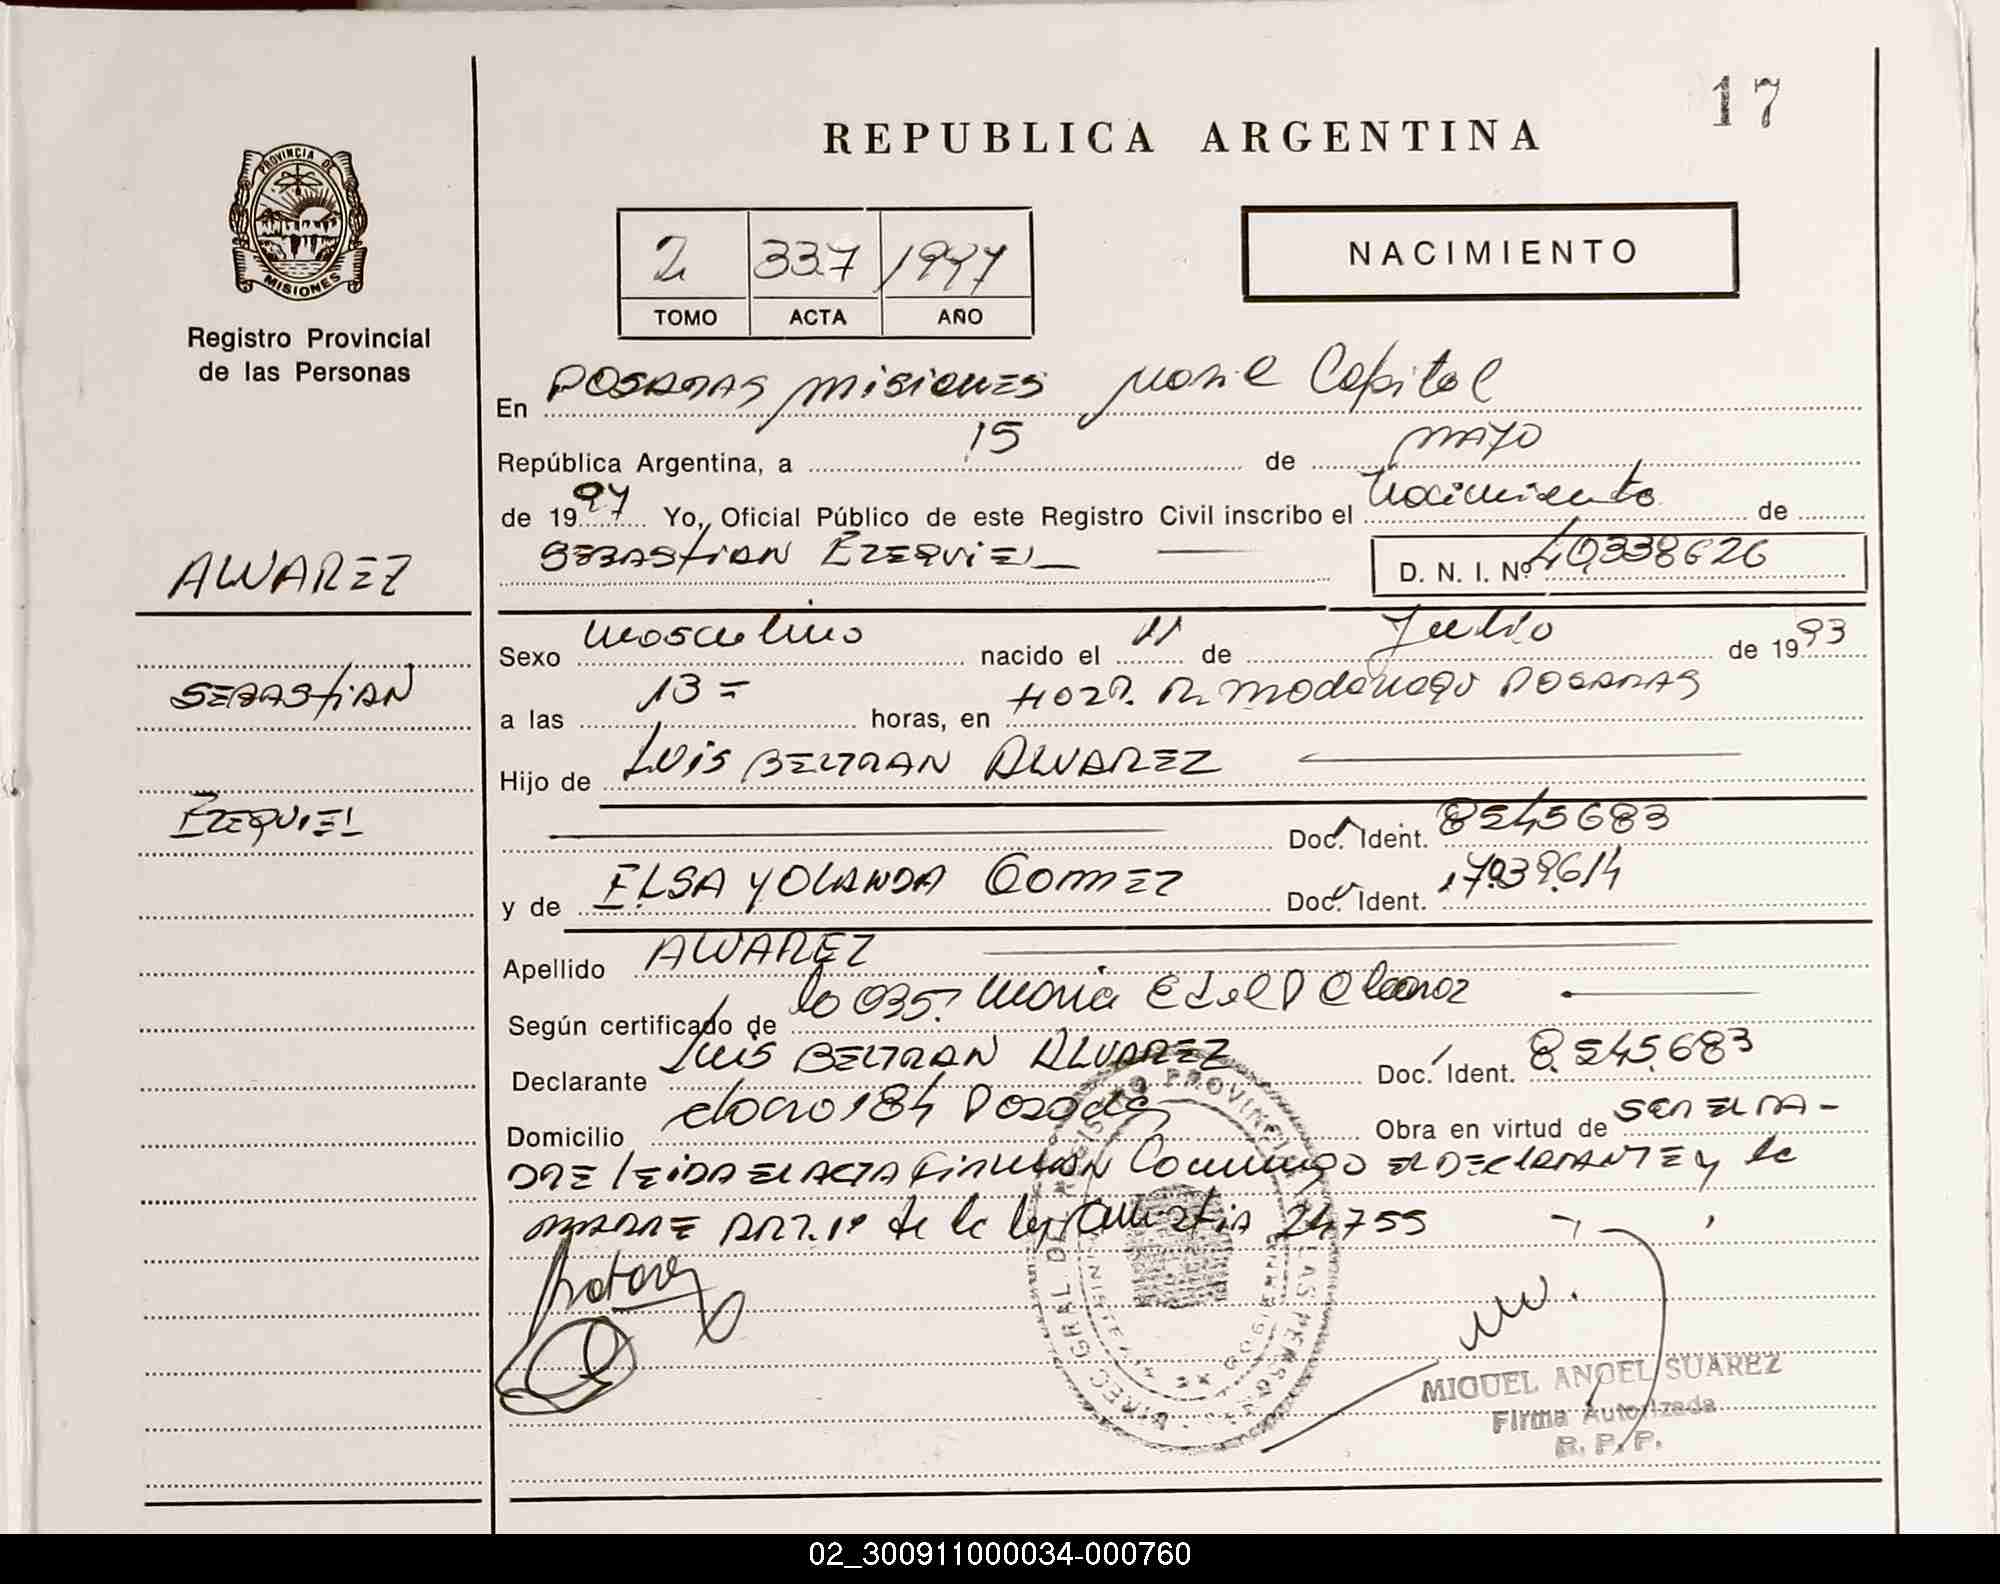 17
REPUBLICA ARGENTINA
PROVINCIA DE
MISIONES
Registro Provincial
de las Personas
2 337 1997
TOMO ACTA AÑO
NACIMIENTO
En POSADAS MISIONES Capital
República Argentina, a 15 de MAYO
de 1997 Yo, Oficial Público de este Registro Civil inscribo el Nacimiento de
SEBASTIAN EZEQUIEL D. N. I. Nº 40.338626
ALVAREZ
SEBASTIAN
EZEQUIEL
Sexo Masculino nacido el 11 de Julio de 1993
a las 13 = horas, en HOSP. R. Madariaga POSADAS
Hijo de LUIS BELTRAN ALVAREZ
Doc. Ident. 8545683
y de ELSA YOLANDA GOMEZ Doc. Ident. 17.039.614
Apellido ALVAREZ
Según certificado de la Maria
Declarante LUIS BELTRAN ALVAREZ Doc. Ident. 8.545.683
Domicilio 184 Posadas Obra en virtud de SER EL PA-
DRE LEIDA EL ACTA FIRMAN Conmigo EL DECLARANTE y la
MADRE ART. 1º de la ley Amnistia 24755
DIREC. GRAL DEL REGISTRO PROVINCIAL DE LAS PERSONAS
MIGUEL ANGEL SUAREZ
Firma Autorizada
R. P. P.
02_300911000034-000760